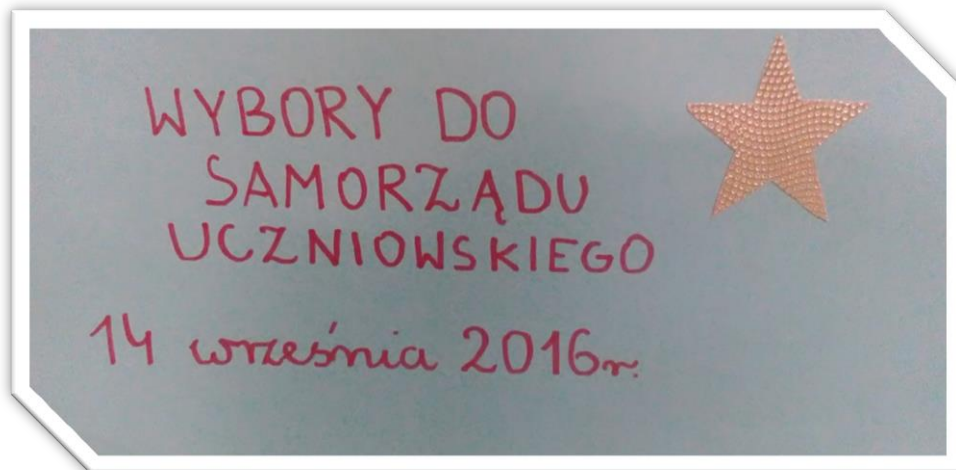 WYBORY DO
SAMORZĄDU
UCZNIOWSKIEGO
14 września 2016r.